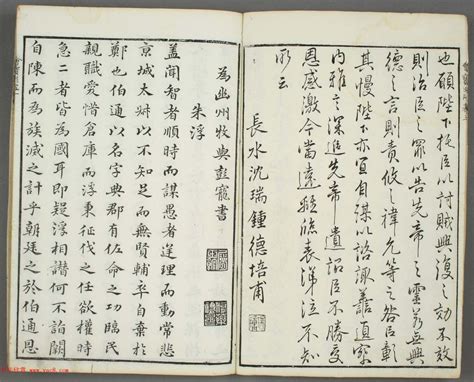 也願陛下托臣以討賊興復之効不效
則治臣之罪以告先帝之靈若無興
德之言則責攸之禕允等之咎以彰
其慢陛下亦宜自謀以諮諏善道察
納雅言深追先帝遺詔臣不勝受
恩感激今當遠離臨表涕泣不知
所云
長水沈瑞鍾德培甫
為幽州牧與彭寵書
朱浮
蓋聞智者順時而謀愚者逆理而動常悲
京城太叔以不知足而無賢輔卒自棄於
鄭也伯通以名字典郡有佐命之功臨民
親職愛惜倉庫而浮秉征伐之任欲權時
急二者皆為國耳即疑浮相譖何不詣闕
自陳而為族滅之計乎朝廷之於伯通恩